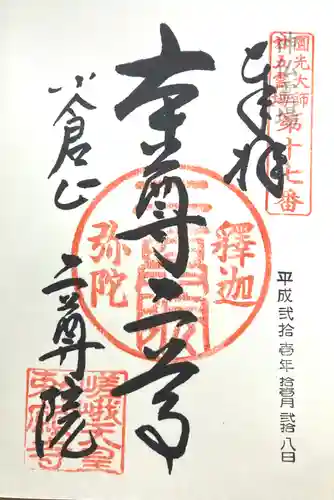 圓光大師
廿五霊場
第十七番
奉拝
平成弐拾壱年 拾壱月 弐拾八日
本尊二尊
釋迦
弥陀
小倉山
二尊院
嵯峨天皇